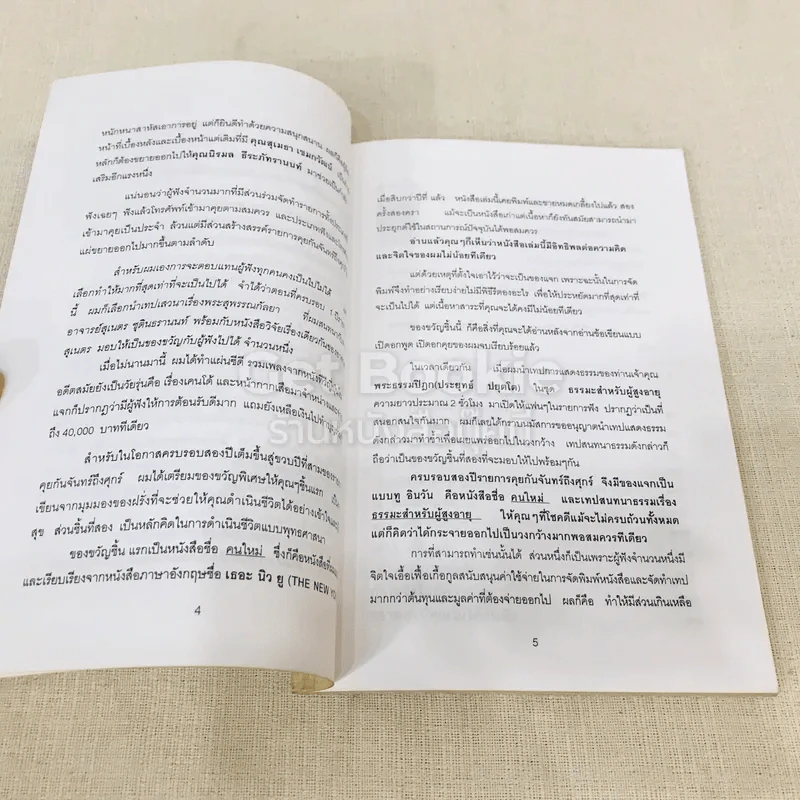 หนักหนาสาหัสเอาการอยู่ แต่ก็ยินดีทำด้วยความสนุกสนาน
หน้าที่เบื้องหลังและเบื้องหน้าแต่เดิมที่มี คุณสุเมธา เขมกวัฒน์
หลักก็ต้องขยายออกไปให้คุณนิรมล ธีระภัทรานนท์ มาช่วยเป็น
เสริมอีกแรงหนึ่ง
แน่นอนว่าผู้ฟังจำนวนมากที่มีส่วนร่วมจัดทำรายการทั้ง
ฟังเฉยๆ ฟังแล้วโทรศัพท์เข้ามาคุยตามสมควร และประเภทฟัง
เข้ามาคุยเป็นประจำ ล้วนแต่มีส่วนสร้างสรรค์รายการคุยกันจันทร์
แผ่ขยายออกไปมากขึ้นตามลำดับ
สำหรับผมเองการจะตอบแทนผู้ฟังทุกคนคงเป็นไปไม่ได้
เลือกทำให้มากที่สุดเท่าที่จะเป็นไปได้ จำได้ว่าตอนที่ครบรอบ 1 ปี
นี้ ผมก็เลือกนำเทปเสวนาเรื่องพระสุพรรณกัลยา ที่ผมสนทนา
อาจารย์สุเนตร ชุตินธรานนท์ พร้อมกับหนังสือวิจัยเรื่องเดียวกัน
สุเนตร มอบให้เป็นของขวัญกับผู้ฟังไปได้ จำนวนหนึ่ง
เมื่อไม่นานมานี้ ผมได้ทำแผ่นซีดี รวมเพลงจากหนัง
อดีตสมัยยังเป็นวัยรุ่นคือ เรื่องเคนโด้ และหน้ากากเสือมาจำหน่าย
แจกก็ปรากฏว่ามีผู้ฟังให้การต้อนรับดีมาก แถมยังเหลือเงินไปทำ
ถึง 40,000 บาททีเดียว
สำหรับในโอกาสครบรอบสองปีเต็มขึ้นสู่ขวบปีที่สามของ
คุยกันจันทร์ถึงศุกร์ ผมได้เตรียมของขวัญพิเศษให้คุณๆชิ้นแรก เป็น
เขียนจากมุมมองของฝรั่งที่จะช่วยให้คุณดำเนินชีวิตได้อย่างเข้าใจและ
สุข ส่วนชิ้นที่สอง เป็นหลักคิดในการดำเนินชีวิตแบบพุทธศาสนา
ของขวัญชิ้น แรกเป็นหนังสือชื่อ คนใหม่ ซึ่งก็คือหนังสือที่
และเรียบเรียงจากหนังสือภาษาอังกฤษชื่อ เธอะ นิว ยู (THE NEW YO
4
เมื่อสิบกว่าปีที่ แล้ว หนังสือเล่มนี้เคยพิมพ์และขายหมดเกลี้ยงไปแล้ว สอง
ครั้งสองครา แม้จะเป็นหนังสือเก่าแต่เนื้อหาก็ยังทันสมัยสามารถนำมา
ประยุกต์ใช้ในสถานการณ์ปัจจุบันได้พอสมควร
อ่านแล้วคุณๆก็เห็นว่าหนังสือเล่มนี้มีอิทธิพลต่อความคิด
และจิตใจของผมไม่น้อยทีเดียว
แต่ด้วยเหตุที่ตั้งใจเอาไว้ว่าจะเป็นของแจก เพราะฉะนั้นในการจัด
พิมพ์จึงทำอย่างเรียบง่ายไม่มีพิธีรีตองอะไร เพื่อให้ประหยัดมากที่สุดเท่าที่
จะเป็นไปได้ แต่เนื้อหาสาระที่คุณจะได้คงมีไม่น้อยทีเดียว
ของขวัญชิ้นนี้ ก็คือสิ่งที่คุณจะได้อ่านหลังจากอ่านข้อเขียนแบบ
เปิดอกพูด เปิดอกคุยของผมจบเรียบร้อยแล้ว
ในเวลาเดียวกัน เมื่อผมนำเทปการแสดงธรรมของท่านเจ้าคุณ
พระธรรมปิฎก(ประยุทธ์ ปยุตโต) ในชุด ธรรมะสำหรับผู้สูงอายุ
ความยาวประมาณ 2 ชั่วโมง มาเปิดให้แฟนๆในรายการฟัง ปรากฏว่าเป็นที่
สนอกสนใจกันมาก ผมก็เลยได้กราบนมัสการขออนุญาตนำเทปสนทนาธรรม
ดังกล่าวมาทำซ้ำเพื่อเผยแพร่ออกไปในวงกว้าง เทปสนทนาธรรมดังกล่าวก็
ถือว่าเป็นของขวัญชิ้นที่สองที่จะมอบให้ไปพร้อมๆกัน
ครบรอบสองปีรายการคุยกันจันทร์ถึงศุกร์ จึงมีของแจกเป็น
แบบทู อินวัน คือหนังสือชื่อ คนใหม่ และเทปสนทนาธรรมเรื่อง
ธรรมะสำหรับผู้สูงอายุ ให้คุณๆที่โชคดีแม้จะไม่ครบถ้วนทั้งหมด
แต่ก็คิดว่าได้กระจายออกไปเป็นวงกว้างมากพอสมควรทีเดียว
การที่สามารถทำเช่นนั้นได้ ส่วนหนึ่งก็เป็นเพราะผู้ฟังจำนวนหนึ่งมี
จิตใจเอื้อเฟื้อเกื้อกูลสนับสนุนค่าใช้จ่ายในการจัดพิมพ์หนังสือและจัดทำเทป
มากกว่าต้นทุนและมูลค่าที่ต้องจ่ายออกไป ผลก็คือ ทำให้มีส่วนเกินเหลือ
5
Get Bookie
ร้านหนังสือเก็ตบุ๊คกี้